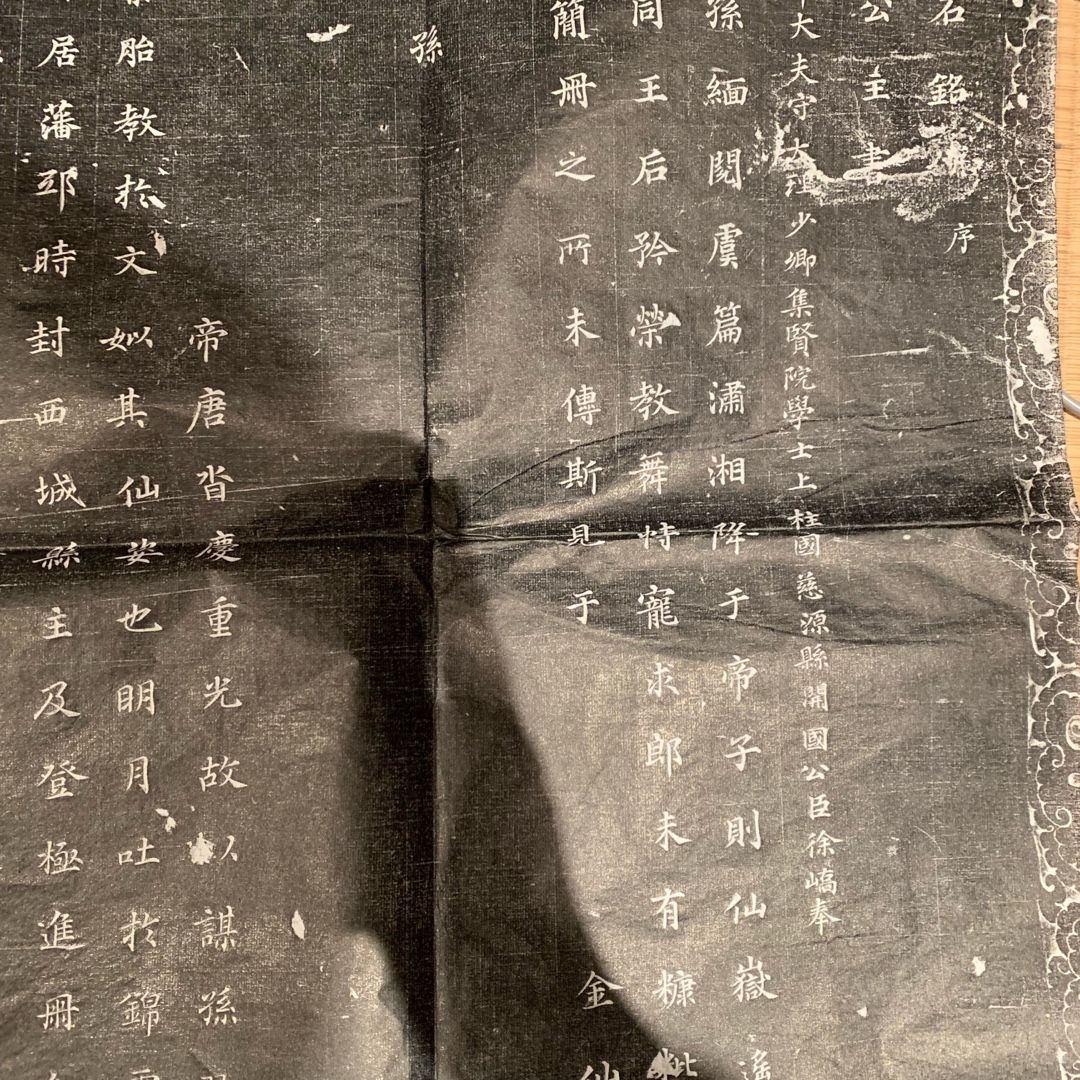 石銘 序
公主書
大夫守大理少卿集賢院學士上柱國慈源縣開國公臣徐嶠奉
孫緬閱虞篇瀟湘降于帝子則仙嶽遙
同王后矜榮教舞恃寵求郎未有糠粃
簡冊之所未傳斯見于 金仙
孫
帝唐沓慶重光故以謀孫
胎教於文如其仙姿也明月吐於錦
居藩邸時封西城縣主及登極進冊